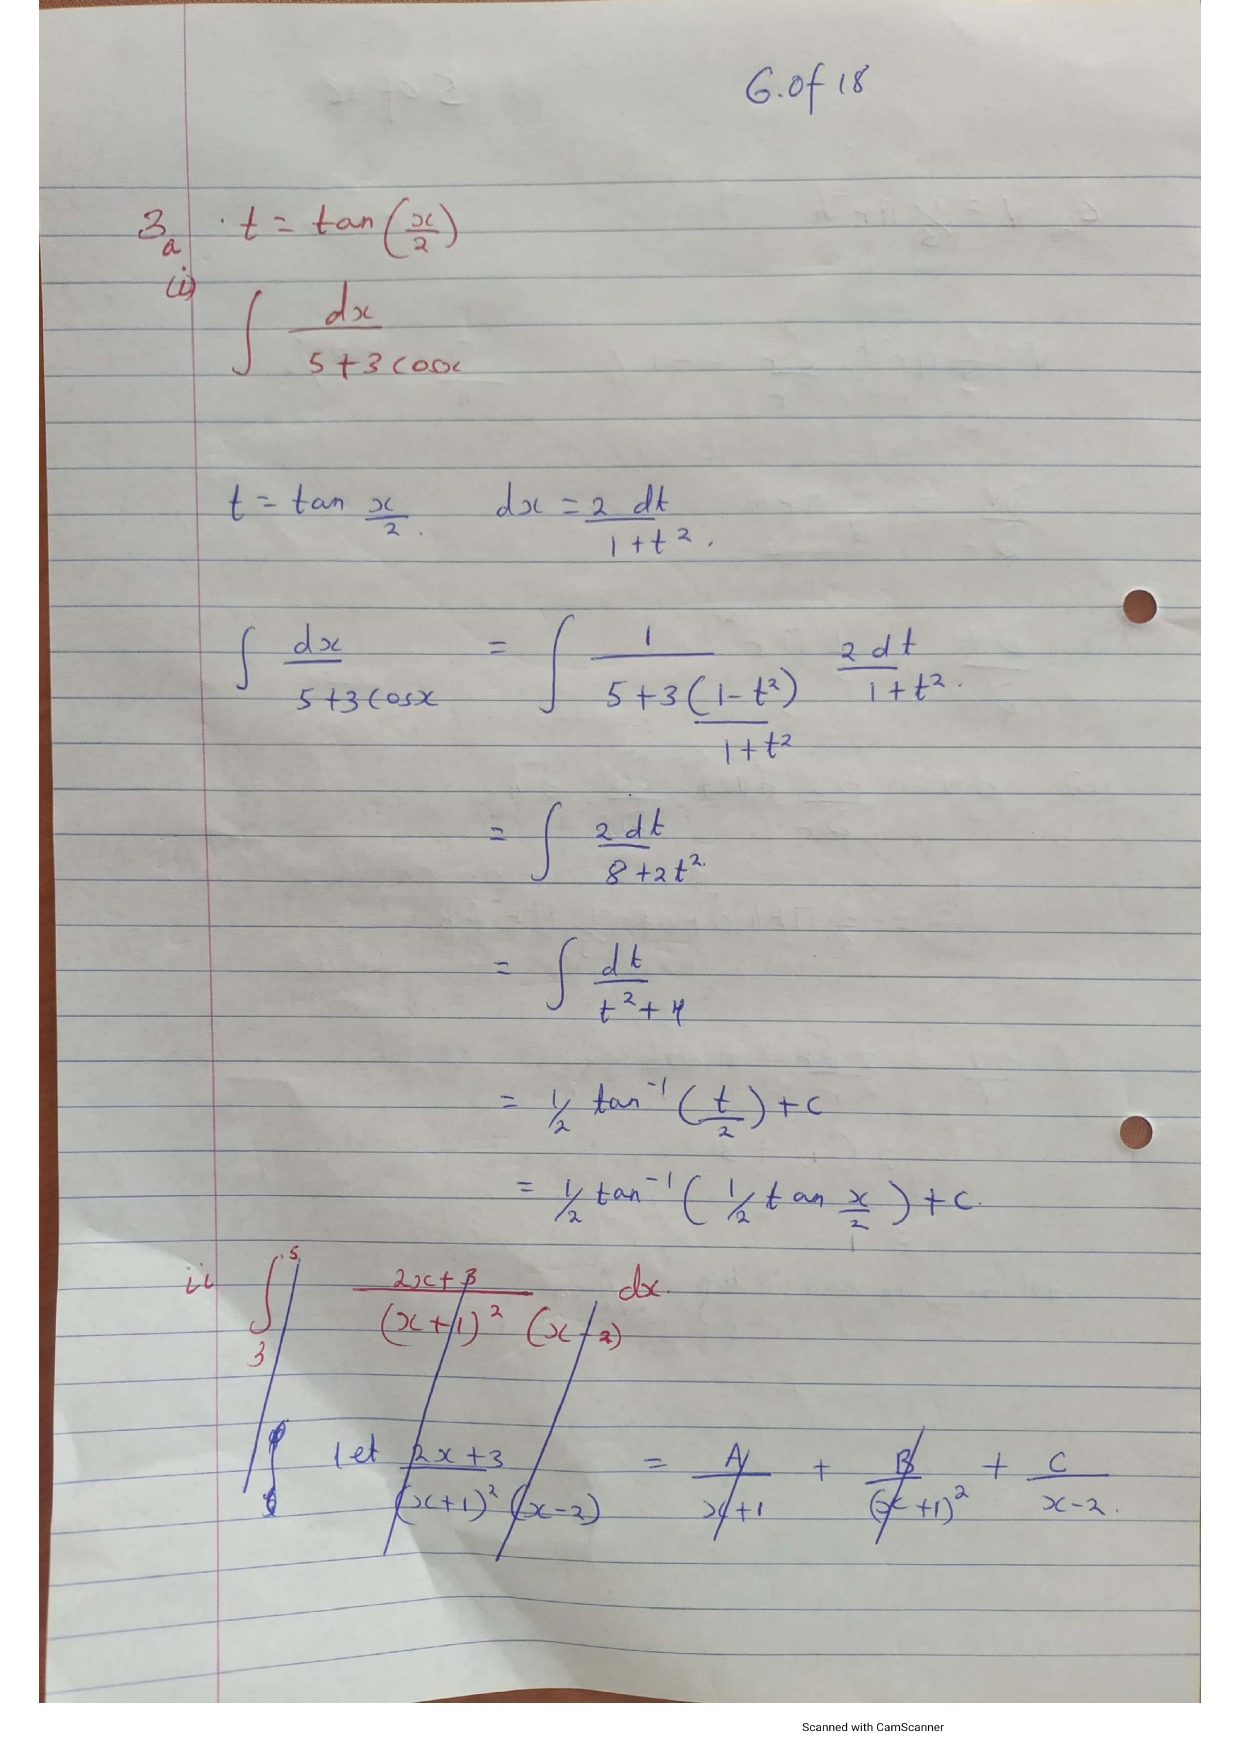 6.of 18
3a (i) t = tan(x/2)
∫ dx / (5+3cosx)
t = tan x/2. dx = 2 dt / (1+t²).
∫ dx / (5+3cosx) = ∫ 1 / (5+3(1-t²)/(1+t²)) 2dt / (1+t²).
= ∫ 2dt / (8+2t²)
= ∫ dt / (t²+4)
= 1/2 tan⁻¹(t/2)+c
= 1/2 tan⁻¹(1/2 tan x/2)+c.
ii ∫₃⁵ (2x+3) / ((x+1)² (x-2)) dx.
let (2x+3) / ((x+1)² (x-2)) = A / (x+1) + B / (x+1)² + C / (x-2).
Scanned with CamScanner